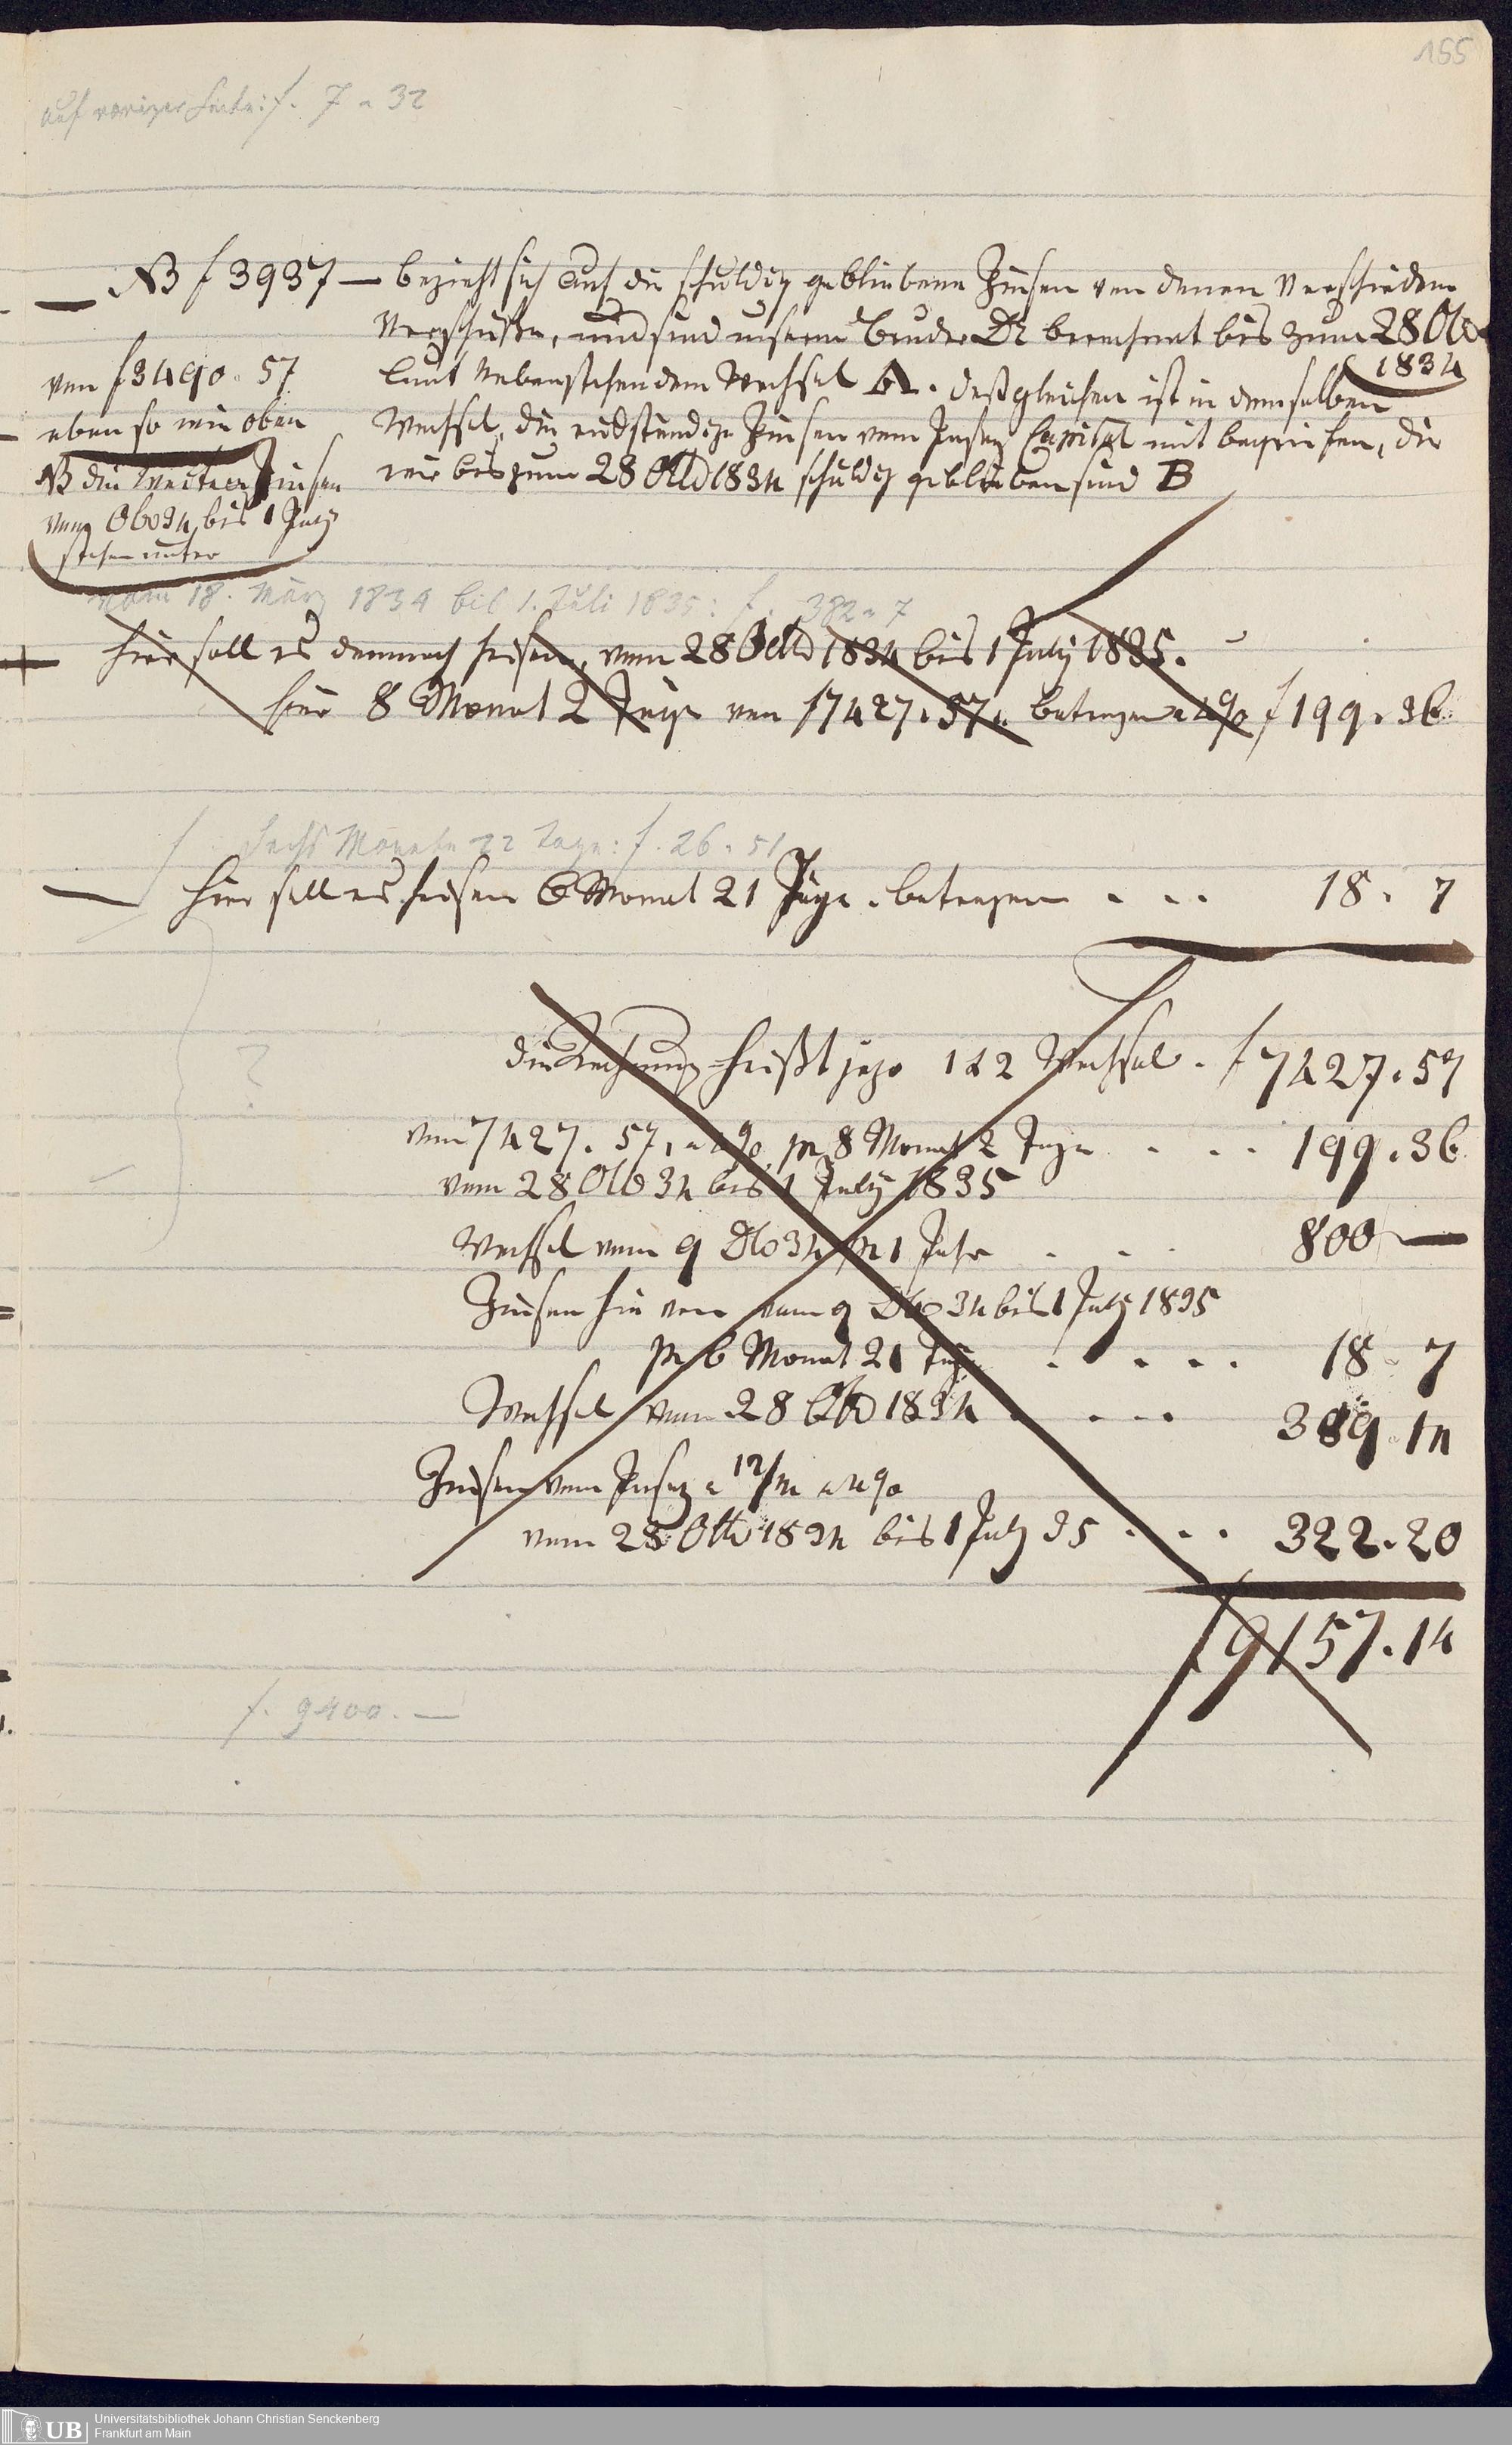 155
auf voriger Seite: f. 7 " 32
NB f 3937 — bezieht sich auf die schuldig gebliebene Zinsen von denen verschiedenen
Vorschüssen, und sind unserm Bruder Dr berechnet bis zum 28 Otb
1834
laut nebenstehendem Wechsel A. deßgleichen ist in demselben
Wechsel, die rückständige Zinsen vom Insaz Capital mit begriefen, die
wir bis zum 28 Octb 1834 schuldig geblieben sind B
von f 3490. 57
eben so wie oben
NB die weitern Zinsen
vom Otb 34 bis 1 July
stehen unter
vom 18. März 1834 bis 1. Juli 1835: f. 382 " 7
hier soll es demnach heisen, vom 28 Octb 1834 bis 1 July 1835.
hier 8 Monat 2 Tage von f 7427. 57. betragen a 4% f 199. 36
Sechs Monate 22 Tage: f. 26. 51
hier soll es heisen 6 Monat 21 Tage. betragen . . . 18. 7
die Rechnung heißt jezo 1 & 2 Wechsel. f 7427. 57
von 7427. 57, a 4% pr 8 Monat 2 Tage . . . 199. 36
vom 28 Otb 34 bis 1 July 1835
Wechsel vom 9 Dbo 34 pr 1 Jahr . . . 800 —
Zinsen hie von vom 9 Dbo 34 bis 1 July 1835
pr 6 Monat 21 Tage . . . . 18. 7
Wechsel vom 28 Otb 1834 . . . . 389. 14
Zinsen vom Insaz a 12/m a 4%
vom 28 Otb 1834 bis 1 July 35 . . . 322. 20
f 9157. 14
f. 9400. —
?
UB
Universitätsbibliothek Johann Christian Senckenberg
Frankfurt am Main